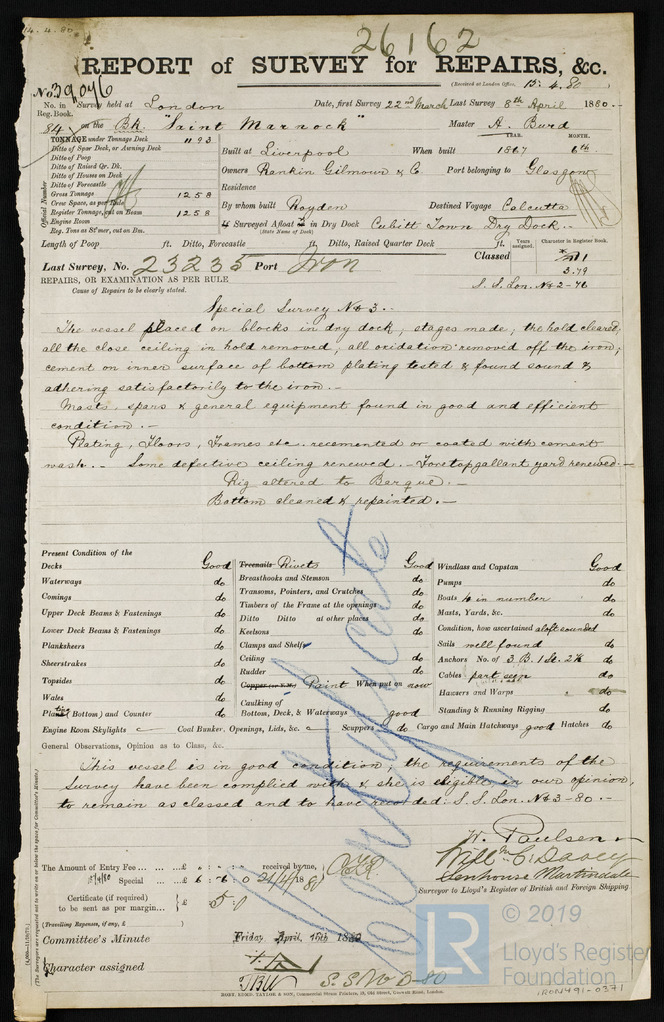 14.4.80
26162
REPORT of SURVEY for REPAIRS, &c.
(Received at London Office, 13.4.80)
No. 39046
No. in Reg. Book. Survey held at London Date, first Survey 22nd March Last Survey 8th April 1880.
84 on the Bk. "Saint Marnock" Master A. Burd
TONNAGE under Tonnage Deck 1193
Ditto of Spar Deck, or Awning Deck
Ditto of Poop
Ditto of Raised Qr. Dk.
Ditto of Houses on Deck
Ditto of Forecastle
Gross Tonnage 1258
Crew Space, as per Rule
Register Tonnage, cut on Beam 1258
Engine Room
Reg. Tons as St'mer, cut on Bm.
Official Number
YEAR. MONTH.
Built at Liverpool When built 1867 6th
Owners Rankin Gilmour & C. Port belonging to Glasgow
Residence
By whom built Royden Destined Voyage Calcutta
Surveyed Afloat in Dry Dock Cubitt Town Dry Dock.
(State Name of Dock)
Length of Poop ft. Ditto, Forecastle ft. Ditto, Raised Quarter Deck ft.
Years assigned. Character in Register Book.
Last Survey, No. 23235 Port Iron Classed
3.79
S.S. Lon. No 2-76
REPAIRS, OR EXAMINATION AS PER RULE
Cause of Repairs to be clearly stated.
Special Survey No 3.
The vessel placed on blocks in dry dock, stages made, the hold cleared,
all the close ceiling in hold removed, all oxidation removed off the iron;
cement on inner surface of bottom plating tested & found sound &
adhering satisfactorily to the iron.
Masts, spars & general equipment found in good and efficient
condition.
Plating, Floors, Frames etc. recemented or coated with cement
wash. Some defective ceiling renewed. Foretopgallant yard renewed.
Rig altered to Barque.
Bottom cleaned & repainted.
Present Condition of the
Decks Good
Waterways do
Comings do
Upper Deck Beams & Fastenings do
Lower Deck Beams & Fastenings do
Planksheers do
Sheerstrakes do
Topsides do
Wales do
Plating (Bottom) and Counter do
Treenails Rivets Good
Breasthooks and Stemson do
Transoms, Pointers, and Crutches do
Timbers of the Frame at the openings do
Ditto Ditto at other places do
Keelsons do
Clamps and Shelf do
Ceiling do
Rudder do
Copper (or Y.M.) Paint When put on now
Caulking of
Bottom, Deck, & Waterways good
Windlass and Capstan Good
Pumps do
Boats 4 in number do
Masts, Yards, &c. do
Condition, how ascertained aloft sounded
Sails well found do
Anchors No. of 3. B. 1 St. 2 K do
Cables part seen do
Hawsers and Warps do
Standing & Running Rigging do
Engine Room Skylights Coal Bunker, Openings, Lids, &c. Scuppers do Cargo and Main Hatchways good Hatches do
General Observations, Opinion as to Class, &c.
This vessel is in good condition, the requirements of the
Survey have been complied with & she is eligible, in our opinion,
to remain as classed and to have recorded: S.S. Lon. No 3-80.
Certificate
W. Paulsen
Willm. C. Davey
Senhouse Martindale
Surveyor to Lloyd's Register of British and Foreign Shipping
The Amount of Entry Fee £ : : received by me,
Special £ 6 : 6 : 0 21/4/1880
Certificate (if required) to be sent as per margin £ 5
(Travelling Expenses, if any, £ )
Committee's Minute Friday April 16th 1880
Character assigned
S.S. No 3-80
ROBT. EDMD. TAYLOR & SON, Commercial Steam Printers, 19, Old Street, Goswell Road, London.
(The Surveyors are requested not to write on or below the space for Committee's Minute.)
© 2019
LR
Lloyd's Register
Foundation
IRON491-0371